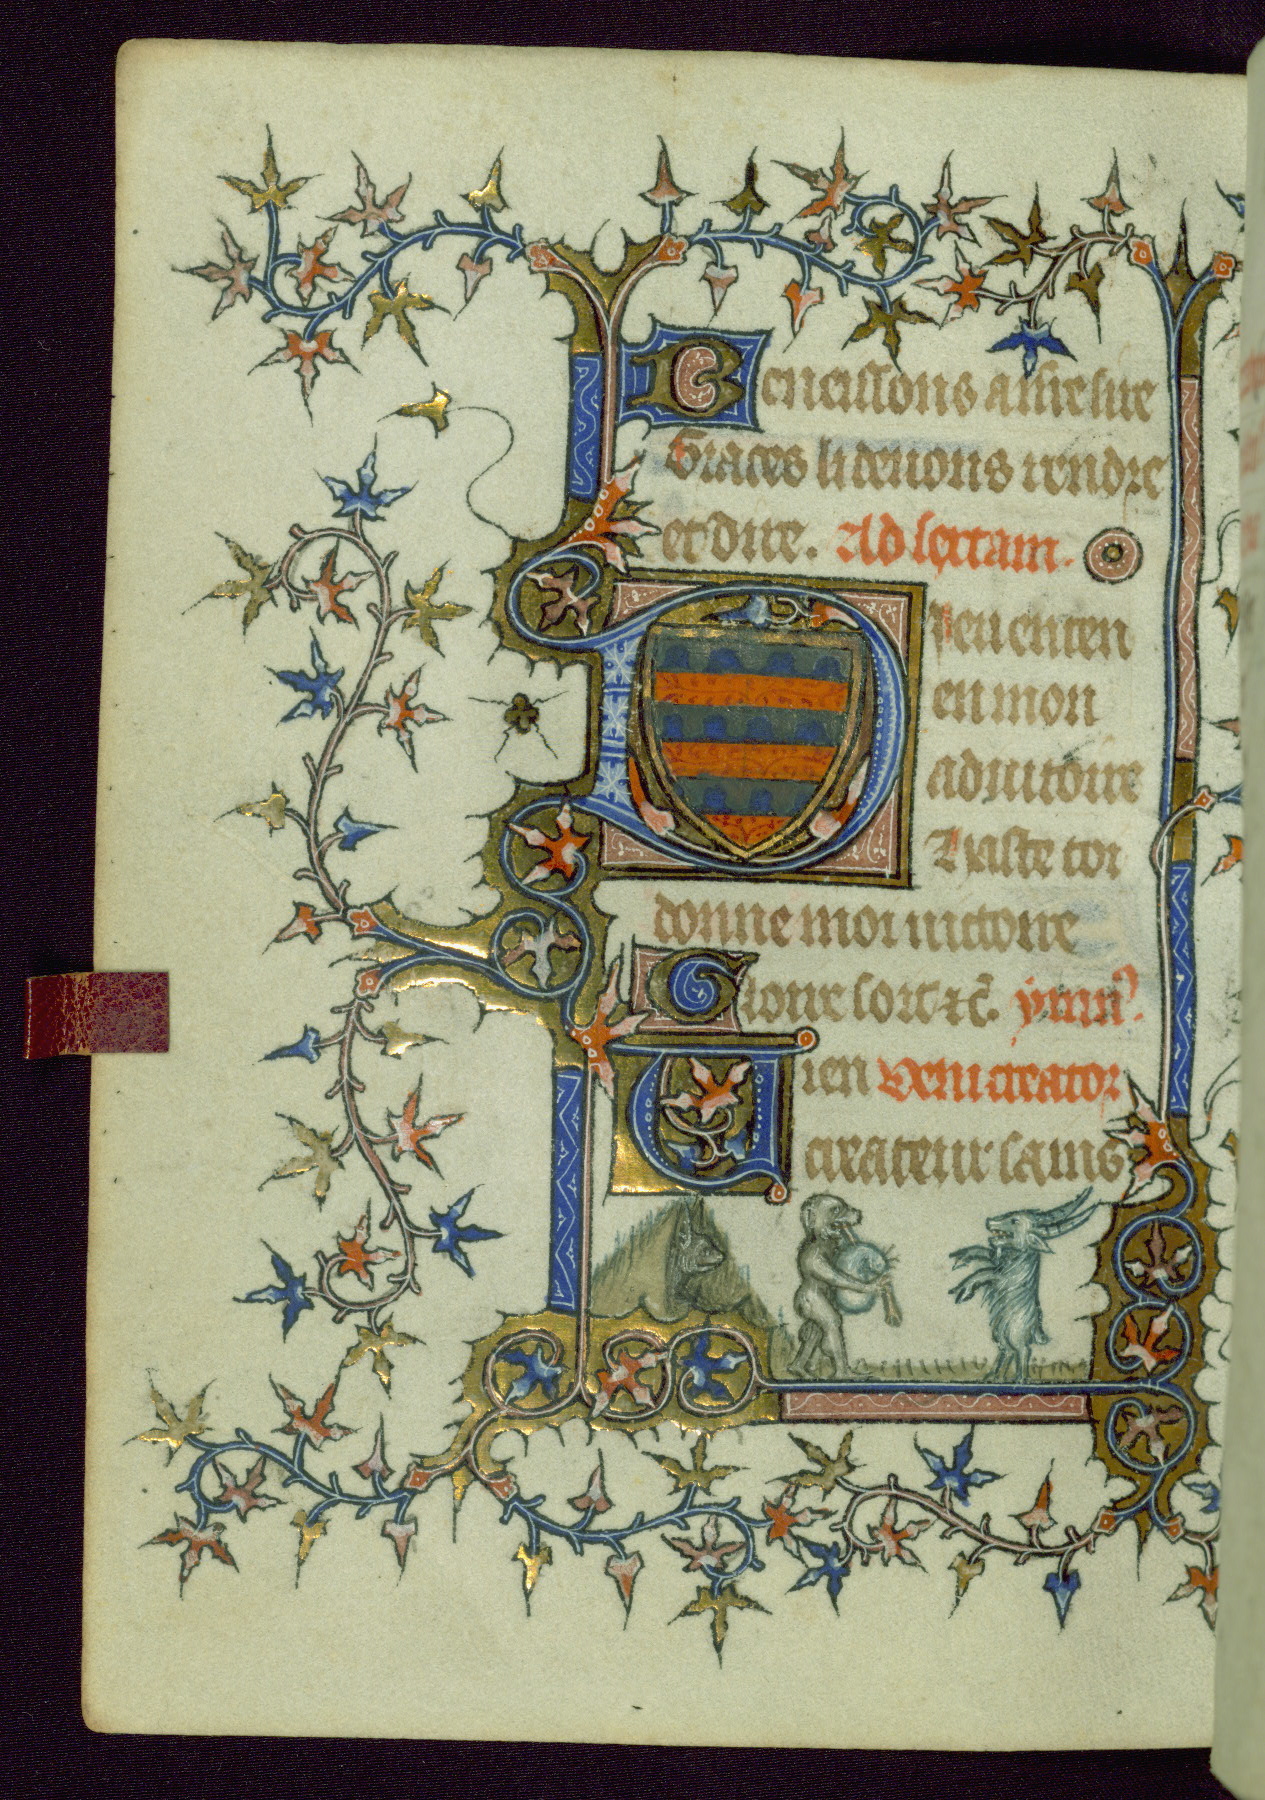 Beneissons a ihesue
Graces li deuons rendre
et dire. Ad sextam.
Deu enten
en mon
adiutoire
haste toi
donne moi uictoire
Gloire soit ⁊c̄. ymnꝰ.
Vien Veni creator
createur sains